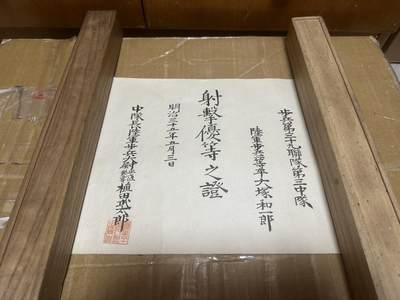 歩兵第三十九聯隊第三中隊
陸軍歩兵一等卒大塚和一郎
射撃優等之證
明治三十五年五月三日
中隊長陸軍歩兵大尉正七位勲六等植田武太郎